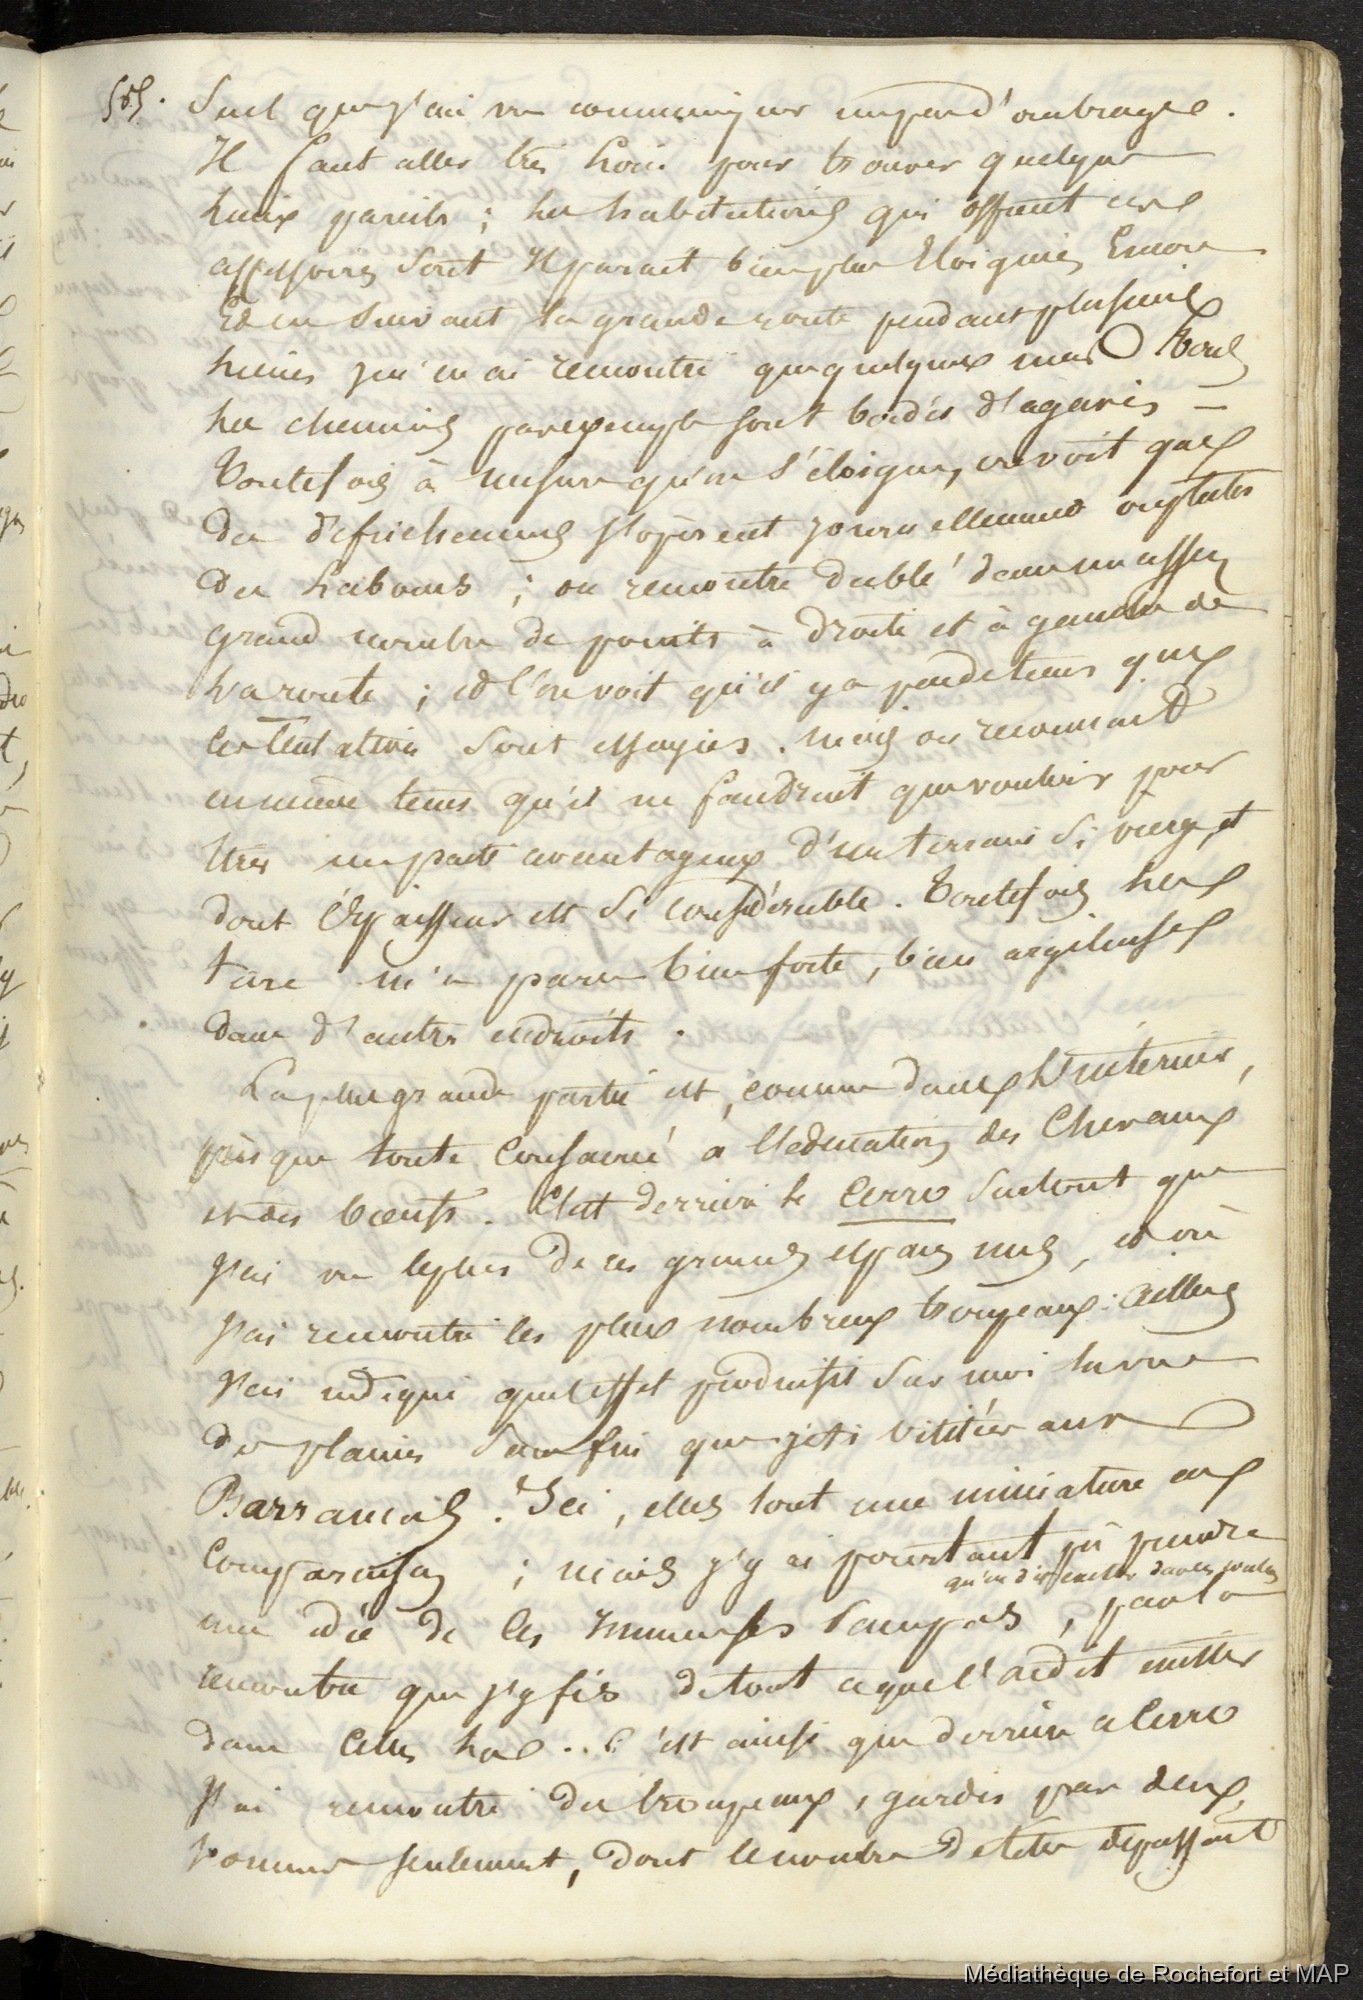 585. Seul que j'ai vu communiquer un peu d'ombrage.
Il faut aller très loin pour trouver quelque
lieux pareils ; les habitations qui offrent ces
accessoires sont Il parait bien plus Eloignées Encore
Et en suivant la grande route pendant plusieurs
lieues je n'en ai rencontré que quelques unes
les chemins par exemple sont bordés d'agaves —
Toutefois à mesure qu'on s'éloigne, on voit que
des défrichemens s'opèrent journellement
des labours ; on rencontre du blé dans un assez
grand nombre de points à droite et à gauche de
la route ; et l'on voit qu'il y a peu de tems que
ces tentatives sont essayées. mais on reconnait
en même tems qu'il ne faudrait que vouloir pour
tirer un parti avantageux d'un terrain si vierge et
dont l'épaisseur est si considérable. Toutefois la
terre m'a paru bien forte, bien argileuse
dans d'autres endroits.
La plus grande partie est, comme dans l'intérieur,
presque toute consacrée à l'éducation des Chevaux
et des bœufs. C'est derrière le Cerro surtout que
j'ai vu le plus de ces grands espaces nus, et où
j'ai rencontré les plus nombreux troupeaux. Ailleurs
j'ai indiqué quel effet produisit sur moi la vue
des plaines sans fin que je visitées aux
Barrancas. Ici, elles sont une miniature en
Comparaison ; mais j'y ai pourtant pû prendre
qu'on doit dans
une idée de ces Immenses Pampas, par la
rencontre que j'y fis de tout ce que l'
dans celles la. . C'est ainsi que derrière le Cerro
J'ai rencontré des troupeaux, gardés par deux
hommes seulement, dont le nombre de têtes dépassait
Médiathèque de Rochefort et MAP